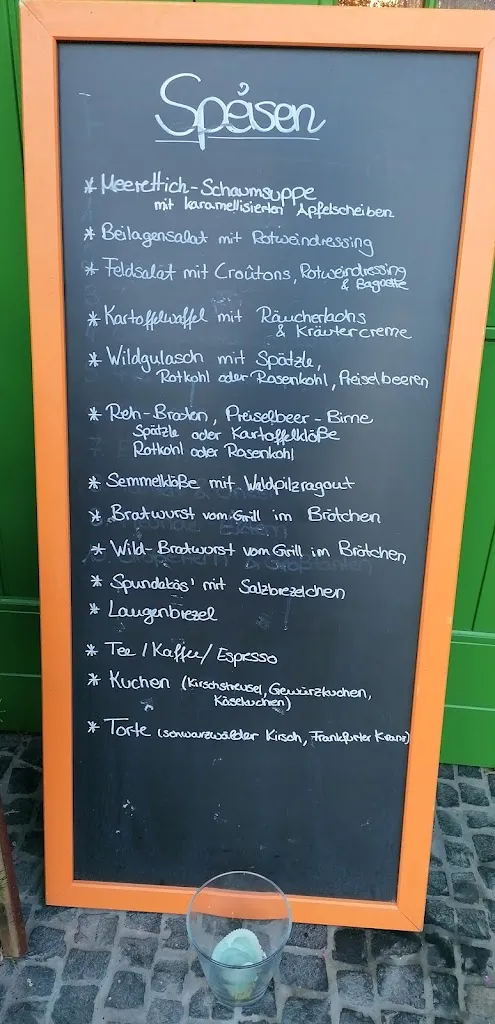 Speisen
* Meerettich-Schaumsuppe
mit karamellisierten Apfelscheiben
* Beilagensalat mit Rotweindressing
* Feldsalat mit Croûtons, Rotweindressing
& Bagutte
* Kartoffelwaffel mit Räucherlachs
& Kräutercreme
* Wildgulasch mit Spätzle,
Rotkohl oder Rosenkohl, Preiselbeeren
* Reh-Braten, Preiselbeer-Birne
Spätzle oder Kartoffelklöße
Rotkohl oder Rosenkohl
* Semmelklöße mit Waldpilzragout
* Bratwurst vom Grill im Brötchen
* Wild-Bratwurst vom Grill im Brötchen
* Spundekäs' mit Salzbrezelchen
* Laugenbrezel
* Tee / Kaffee / Espresso
* Kuchen (Kirschstreusel, Gewürzkuchen,
Käsekuchen)
* Torte (Schwarzwälder Kirsch, Frankfurter Kranz)